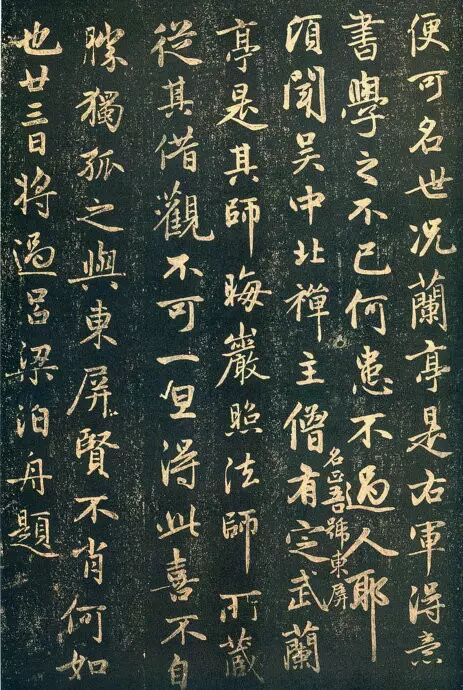 便可名世况蘭亭是右軍得意
書學之不已何患不過人耶
名正吾號東屏
頃聞吴中北禪主僧有定武蘭
亭是其師晦巖照法師所藏
從其借觀不可一旦得此喜不自
勝獨孤之與東屏賢不肖何如
也廿三日將過呂梁泊舟題